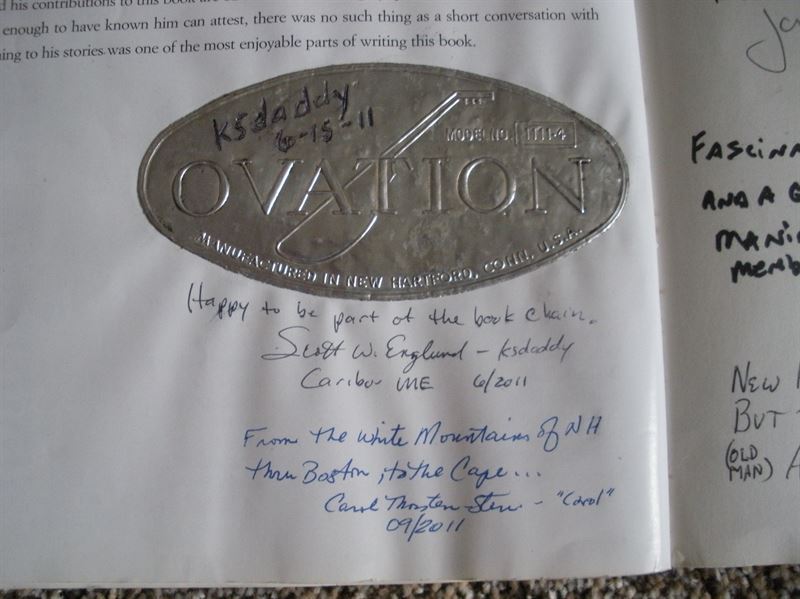 enough to have known him can attest, there was no such thing as a short conversation with
to his stories was one of the most enjoyable parts of writing this book.
ksdaddy
6-15-11
MODEL NO. 1111-4
OVATION
MANUFACTURED IN NEW HARTFORD, CONN. U.S.A.
Happy to be part of the book chain.
Scott W. Englund - ksdaddy
Caribou ME 6/2011
From the White Mountains of NH
thru Boston, to the Cape...
Carol - "Carol"
09/2011
AND A
NEW
BUT
(OLD
MAN)